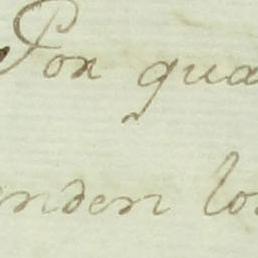 Por qua
nden los